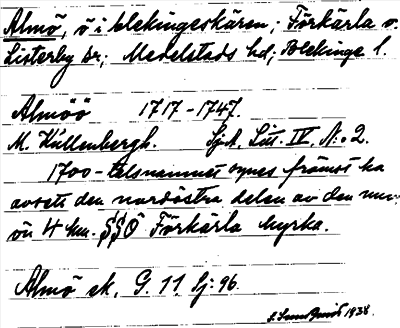 Almö, ö i blekingeskären; Förkärla o.
Listerby sr; Medelstads hd, Blekinge l.
Almöö 1717-1747.
M. Kullenbergh. Sj.k. Litt. IV, N:o 2.
1700-talsnamnet synes främst ha
avsett den nordöstra delen av den nuv.
ön 4 km. SSÖ Förkärla kyrka.
Almö ek. G. 11 Sj: 96.
1938